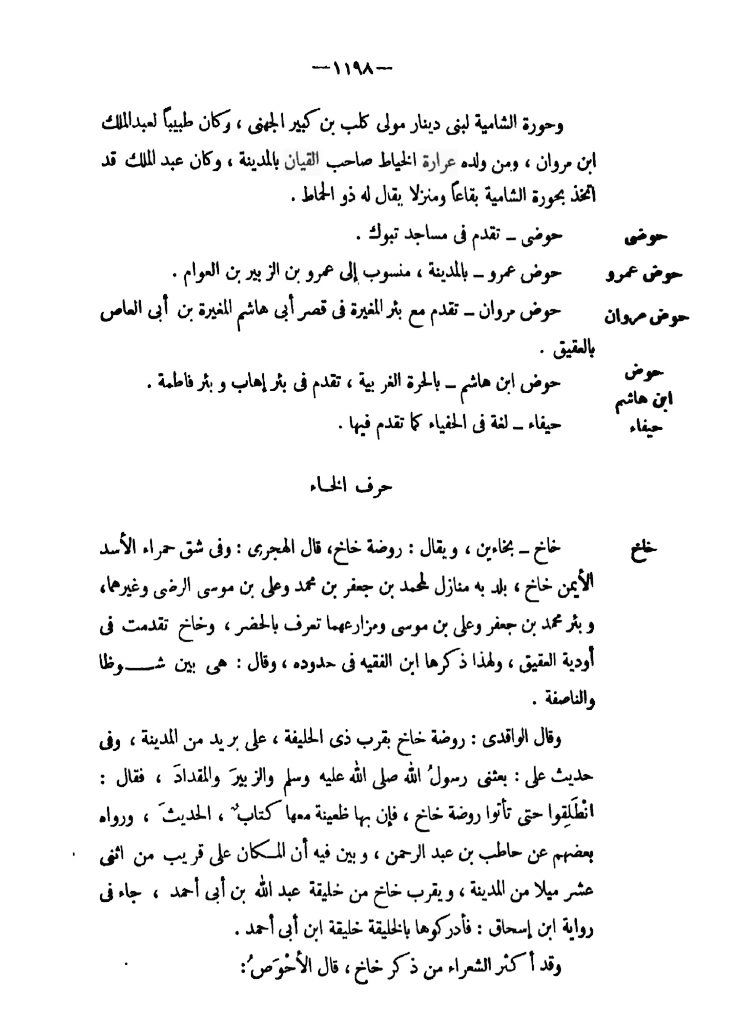 —١١٩٨—
وحورة الشامية لبنى دينار مولى كلب بن كبير الجهنى ، وكان طبيباً لعبدالملك
ابن مروان ، ومن ولده عرارة الخياط صاحب القيان بالمدينة ، وكان عبد الملك قد
اتخذ بحورة الشامية بقاعاً ومنزلا يقال له ذو الحماط .
حوضى
حوضى ــ تقدم فى مساجد تبوك .
حوض عمرو
حوض عمرو ــ بالمدينة ، منسوب إلى عمرو بن الزبير بن العوام .
حوض مروان
حوض مروان ــ تقدم مع بئر المغيرة فى قصر أبى هاشم المغيرة بن أبى العاص
بالعقيق .
حوض
ابن هاشم
حوض ابن هاشم ــ بالحرة الغربية ، تقدم فى بئر إهاب و بئر فاطمة .
حيفاء
حيفاء ــ لغة فى الحفياء كما تقدم فيها .
حرف الخاء
خاخ
خاخ ــ بخاءين ، ويقال : روضة خاخ، قال الهجرى : وفى شق حمراء الأسد
الأيمن خاخ ، بلد به منازل لمحمد بن جعفر بن محمد وعلى بن موسى الرضى وغيرهما،
و بئر محمد بن جعفر وعلى بن موسى ومزارعهما تعرف بالحضر ، وخاخ تقدمت فى
أودية العقيق ، ولهذا ذكرها ابن الفقيه فى حدوده ، وقال : هى بين شـــوظا
والناصفة .
وقال الواقدى : روضة خاخ بقرب ذى الحليفة ، على بريد من المدينة ، وفى
حديث على : بعثنى رسولُ الله صلى الله عليه وسلم والزبيرَ والمقدادَ ، فقال :
انْطَلِقوا حتى تأتوا روضة خاخ ، فإن بها ظعينة معها كتابٌ ، الحديثَ ، ورواه
بعضهم عن حاطب بن عبد الرحمن ، وبين فيه أن المكان على قريب من اثنى
عشر ميلا من المدينة ، ويقرب خاخ من خليقة عبد الله بن أبى أحمد ، جاء فى
رواية ابن إسحاق : فأدركوها بالخليقة خليقة ابن أبى أحمد .
وقد أكثر الشعراء من ذكر خاخ ، قال الأحْوَصُ: